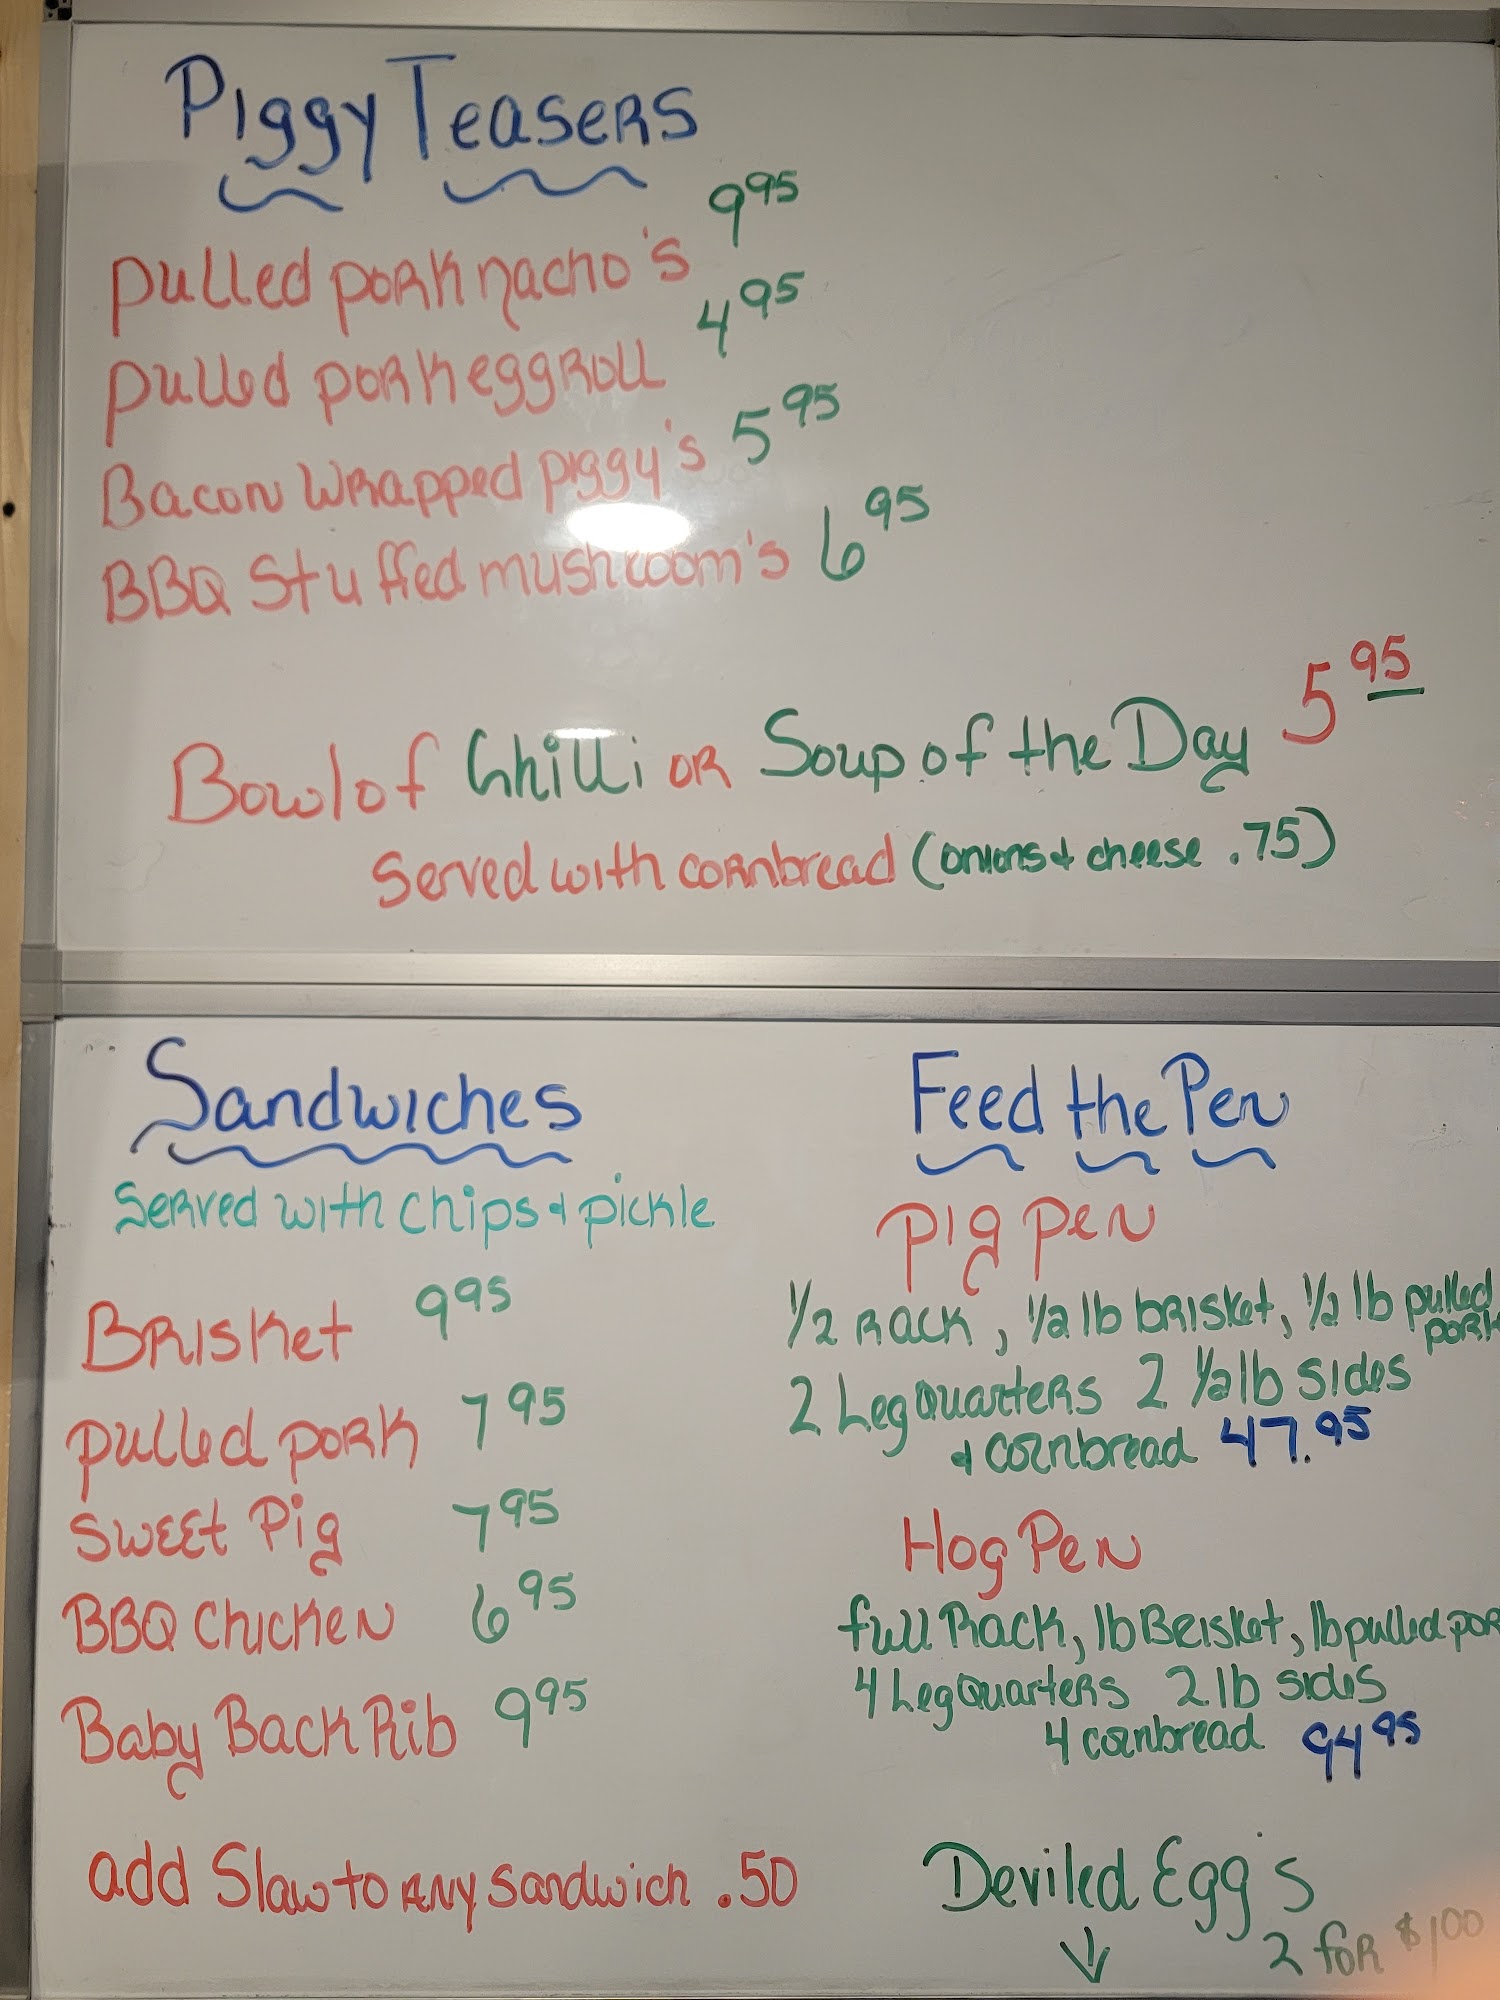 Piggy Teasers
pulled pork nacho's 9 95
pulled pork eggroll 4 95
Bacon Wrapped piggy's 5 95
BBQ Stuffed mushroom's 6 95
Bowl of Chilli or Soup of the Day 5 95
Served with cornbread (onions & cheese .75)
Sandwiches
Served with chips & pickle
Brisket 9 95
pulled pork 7 95
Sweet Pig 7 95
BBQ Chicken 6 95
Baby Back Rib 9 95
add Slaw to Any Sandwich .50
Feed the Pen
pig pen
1/2 rack, 1/2 lb brisket, 1/2 lb pulled
pork
2 Leg Quarters 2 1/2 lb sides
& cornbread 47.95
Hog Pen
full Rack, lb Brisket, lb pulled por
4 Leg Quarters 2 lb sides
4 cornbread 94 95
Deviled Egg's
2 for $1.00